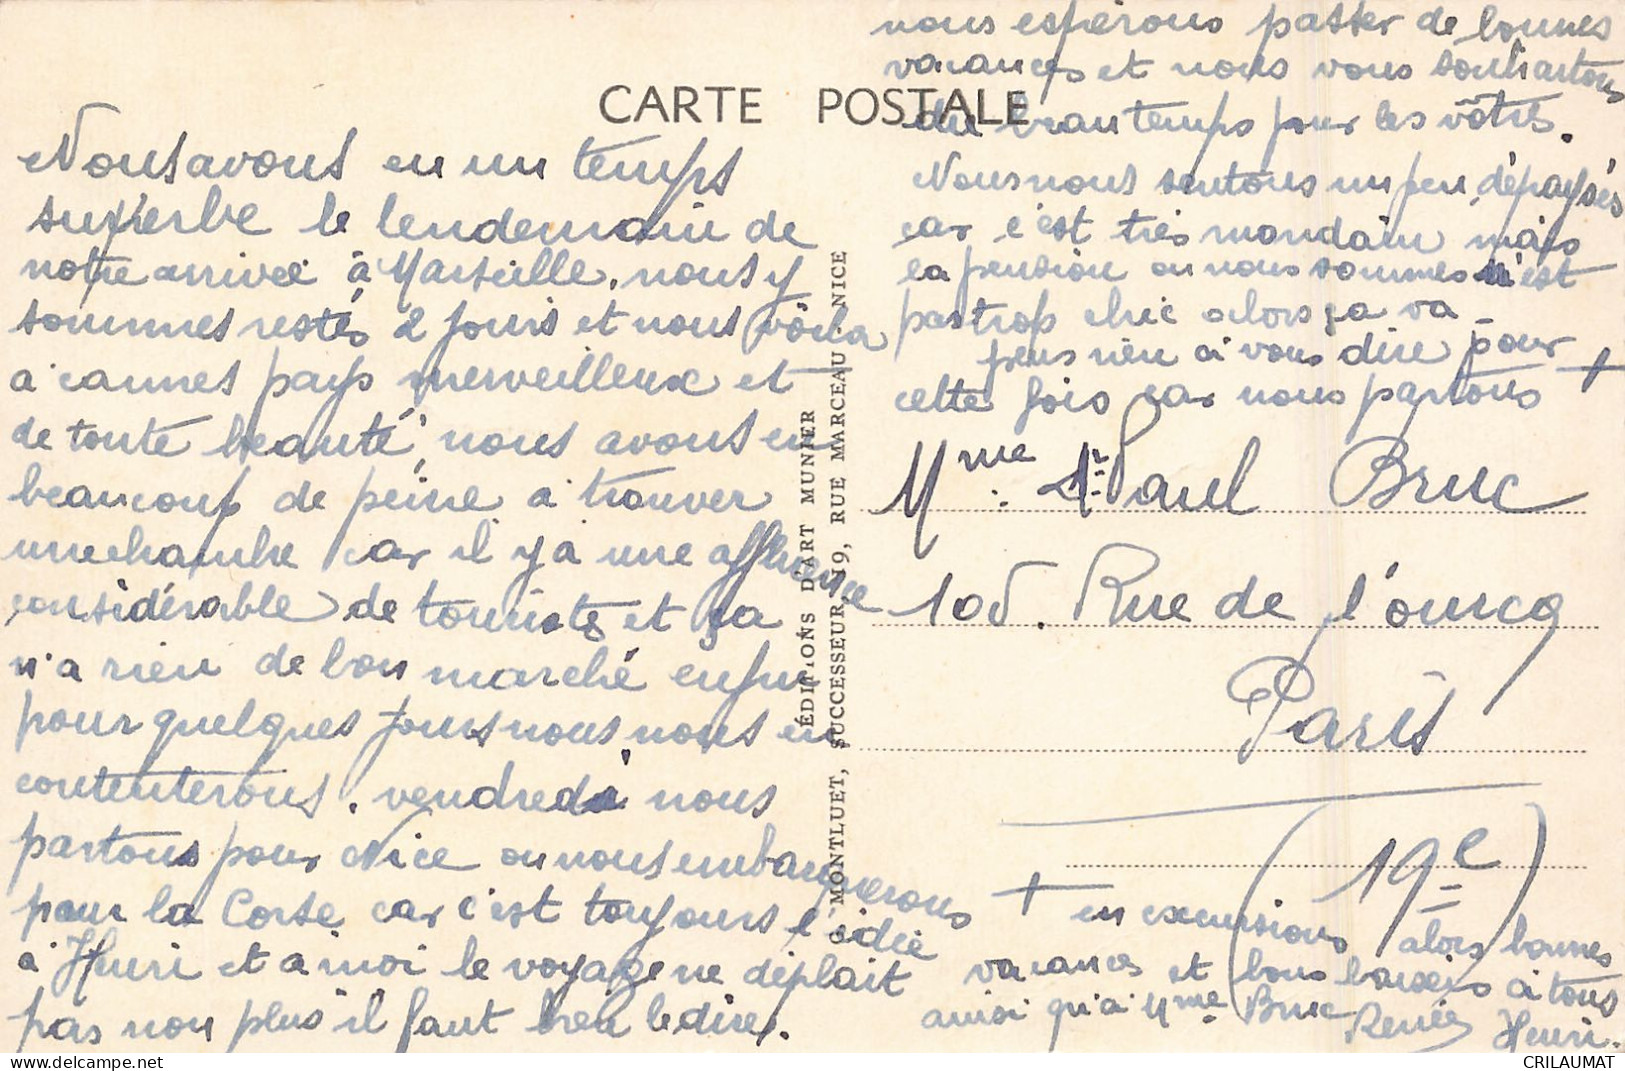 CARTE POSTALE
Nous avons eu un temps
superbe le lendemain de
notre arrivée à Marseille, nous y
sommes restés 2 jours et nous voila
à cannes pays merveilleux et
de toute beauté, nous avons eu
beaucoup de peine a trouver
une chambre car il y a une affluence
considérable de touristes et ça
n'a rien de bon marché enfin
pour quelques jours nous nous en
contenterons. vendredi nous
partons pour Nice ou nous embarquerons
pour la Corse car c'est toujours l'idée
à Henri et à moi le voyage ne déplait
pas non plus il faut bien le dire.
nous espérons passer de bonnes
vacances et nous vous souhaitons
du beau temps pour les vôtres.
Nous nous sentons un peu dépaysés
car c'est très mondain mais
la pension ou nous sommes n'est
pas trop chic alors ça va
plus rien à vous dire pour
cette fois car nous partons +
Mme Paul Bruc
105. Rue de l'ourcq
Paris
(19e)
+ en excursions alors bonnes
vacances et bons baisers à tous
ainsi qu'à Mme Bruc
Renée Henri.
ÉDITIONS D'ART MUNIER
G. MONTLUET, SUCCESSEUR, 19, RUE MARCEAU, NICE
CRILAUMAT